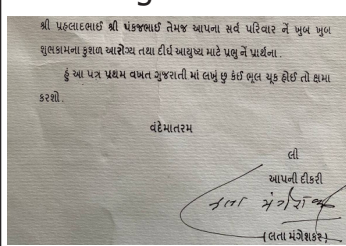 શ્રી પ્રહલાદભાઈ શ્રી પંકજભાઈ તેમજ આપના સર્વ પરિવાર નેં ખુબ ખુબ
શુભકામના કુશળ આરોગ્ય તથા દીર્ઘ આયુષ્ય માટે પ્રભુ નેં પ્રાર્થના.
હું આ પત્ર પ્રથમ વખત ગુજરાતી માં લખું છુ કંઈ ભૂલ ચૂક હોઈ તો ક્ષમા
કરશો.
વંદેમાતરમ
લી
આપની દીકરી
લતા મંગેશકર
(લતા મંગેશકર)